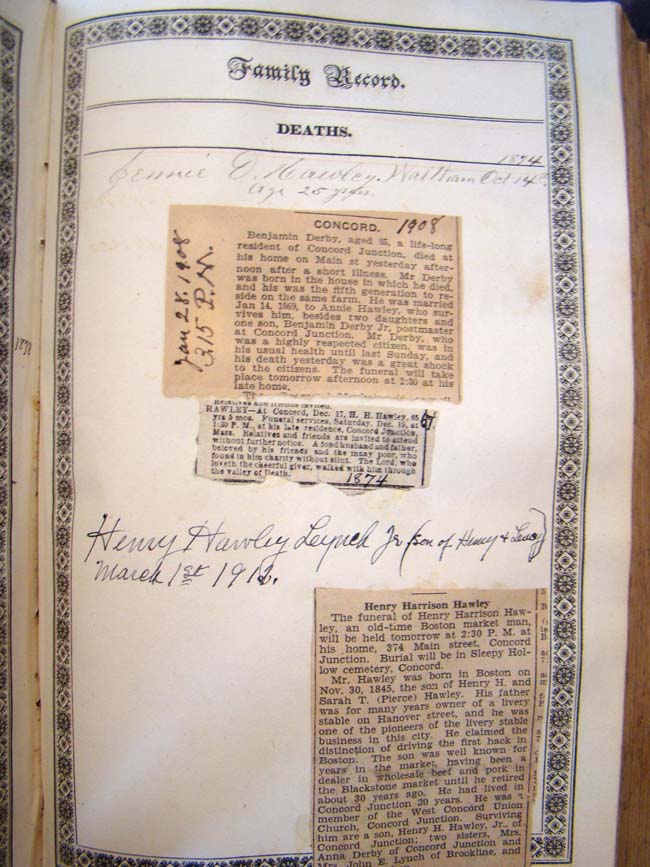 Family Record.
DEATHS.
1874
Jennie D. Hawley. Waltham Oct 14th
Age 25 yrs.
1878
Jan 28, 1908
3 15 P.M.
CONCORD. 1908
Benjamin Derby, aged 85, a life-long
resident of Concord Junction, died at
his home on Main st yesterday after-
noon after a short illness. Mr Derby
was born in the house in which he died,
and his was the fifth generation to re-
side on the same farm. He was married
Jan 14, 1869, to Annie Hawley, who sur-
vives him, besides two daughters and
one son, Benjamin Derby Jr, postmaster
at Concord Junction. Mr Derby, who
was a highly respected citizen, was in
his usual health until last Sunday, and
his death yesterday was a great shock
to the citizens. The funeral will take
place tomorrow afternoon at 2:30 at his
late home.
Relatives and friends invited.
HAWLEY—At Concord, Dec. 17, H. H. Hawley, 65
yrs 5 mos. Funeral services, Saturday, Dec. 19, at
1:30 P. M., at his late residence, Concord Junction,
Mass. Relatives and friends are invited to attend
without further notice. A fond husband and father,
beloved by his friends and the many poor, who
found in him charity without stint. The Lord, who
loveth the cheerful giver, walked with him through
the valley of Death.
1874
Henry Hawley Lynch Jr (son of Henry & Lucy)
March 1st 1912.
Henry Harrison Hawley
The funeral of Henry Harrison Haw-
ley, an old-time Boston market man,
will be held tomorrow at 2:30 P. M. at
his home, 374 Main street, Concord
Junction. Burial will be in Sleepy Hol-
low cemetery, Concord.
Mr. Hawley was born in Boston on
Nov. 30, 1845, the son of Henry H. and
Sarah T. (Pierce) Hawley. His father
was for many years owner of a livery
stable on Hanover street, and he was
one of the pioneers of the livery stable
business in this city. He claimed the
distinction of driving the first hack in
Boston. The son was well known for
years in the market, having been a
dealer in wholesale beef and pork in
the Blackstone market until he retired
about 30 years ago. He had lived in
Concord Junction 20 years. He was a
member of the West Concord Union
Church, Concord Junction. Surviving
him are a son, Henry H. Hawley, Jr., of
Concord Junction; two sisters, Mrs.
Anna Derby of Concord Junction and
Mrs. John E. Lynch of Brookline, and